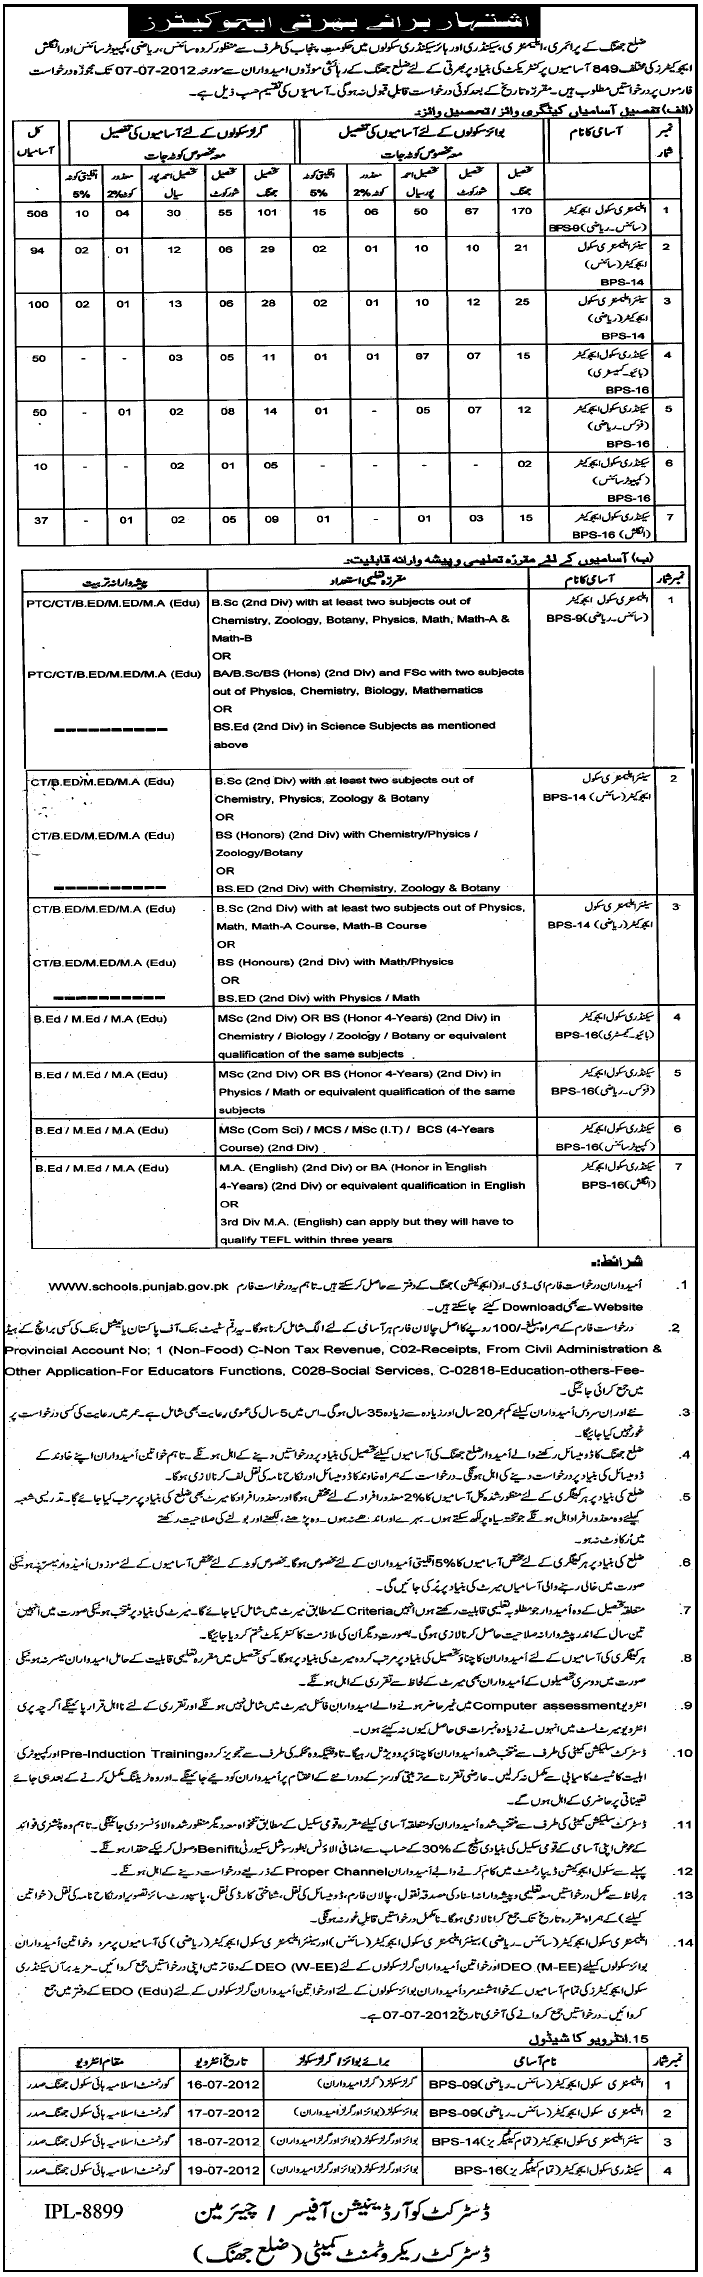 اشتہار برائے بھرتی ایجوکیٹرز
ضلع جھنگ کے پرائمری، ایلیمنٹری، سیکنڈری اور ہائر سیکنڈری سکولوں میں حکومت پنجاب کی طرف سے منظور کردہ سائنس، ریاضی، کمپیوٹر سائنس اور انگلش
ایجوکیٹرز کی مختلف 849 آسامیوں پر کنٹریکٹ کی بنیاد پر بھرتی کے لئے ضلع جھنگ کے رہائشی موزوں امیدواران سے مورخہ 07-07-2012 تک مجوزہ درخواست
فارموں پر درخواستیں مطلوب ہیں۔ مقررہ تاریخ کے بعد کوئی درخواست قابل قبول نہ ہوگی۔ آسامیوں کی تقسیم حسب ذیل ہے۔
(الف) تفصیل آسامیاں کیٹگری وائز/تحصیل وائز:
نمبر شمار آسامی کا نام بوائز سکولوں کے لئے آسامیوں کی تفصیل معہ مخصوص کوٹہ جات گرلز سکولوں کے لئے آسامیوں کی تفصیل معہ مخصوص کوٹہ جات کل آسامیاں
تحصیل جھنگ تحصیل شورکوٹ تحصیل احمد پور سیال معذور کوٹہ 2% اقلیتی کوٹہ 5% تحصیل جھنگ تحصیل شورکوٹ تحصیل احمد پور سیال معذور کوٹہ 2% اقلیتی کوٹہ 5%
1 ایلیمنٹری سکول ایجوکیٹر (سائنس۔ریاضی) BPS-9 170 67 50 06 15 101 55 30 04 10 508
2 سینئر ایلیمنٹری سکول ایجوکیٹر (سائنس) BPS-14 21 10 10 01 02 29 06 12 01 02 94
3 سینئر ایلیمنٹری سکول ایجوکیٹر (ریاضی) BPS-14 25 12 10 01 02 28 06 13 01 02 100
4 سیکنڈری سکول ایجوکیٹر (بائیو۔کیمسٹری) BPS-16 15 07 07 01 01 11 05 03 - - 50
5 سیکنڈری سکول ایجوکیٹر (فزکس۔ریاضی) BPS-16 12 07 05 - 01 14 08 02 01 - 50
6 سیکنڈری سکول ایجوکیٹر (کمپیوٹر سائنس) BPS-16 02 - - - - 05 01 02 - - 10
7 سیکنڈری سکول ایجوکیٹر (انگلش) BPS-16 15 03 01 - 01 09 05 02 01 - 37
(ب) آسامیوں کے لئے مقررہ تعلیمی و پیشہ وارانہ قابلیت:۔
نمبر شمار آسامی کا نام مقررہ تعلیمی استعداد پیشہ وارانہ تربیت
1 ایلیمنٹری سکول ایجوکیٹر (سائنس۔ریاضی) BPS-9
B.Sc (2nd Div) with at least two subjects out of PTC/CT/B.ED/M.ED/M.A (Edu)
Chemistry, Zoology, Botany, Physics, Math, Math-A &
Math-B
OR
BA/B.Sc/BS (Hons) (2nd Div) and FSc with two subjects PTC/CT/B.ED/M.ED/M.A (Edu)
out of Physics, Chemistry, Biology, Mathematics
OR
BS.Ed (2nd Div) in Science Subjects as mentioned ----------
above
2 سینئر ایلیمنٹری سکول ایجوکیٹر (سائنس) BPS-14
B.Sc (2nd Div) with at least two subjects out of CT/B.ED/M.ED/M.A (Edu)
Chemistry, Physics, Zoology & Botany
OR
BS (Honors) (2nd Div) with Chemistry/Physics / CT/B.ED/M.ED/M.A (Edu)
Zoology/Botany
OR
BS.ED (2nd Div) with Chemistry, Zoology & Botany ----------
3 سینئر ایلیمنٹری سکول ایجوکیٹر (ریاضی) BPS-14
B.Sc (2nd Div) with at least two subjects out of Physics, CT/B.ED/M.ED/M.A (Edu)
Math, Math-A Course, Math-B Course
OR
BS (Honours) (2nd Div) with Math/Physics CT/B.ED/M.ED/M.A (Edu)
OR
BS.ED (2nd Div) with Physics / Math ----------
4 سیکنڈری سکول ایجوکیٹر (بائیو۔کیمسٹری) BPS-16
MSc (2nd Div) OR BS (Honor 4-Years) (2nd Div) in B.Ed / M.Ed / M.A (Edu)
Chemistry / Biology / Zoology / Botany or equivalent
qualification of the same subjects
5 سیکنڈری سکول ایجوکیٹر (فزکس۔ریاضی) BPS-16
MSc (2nd Div) OR BS (Honor 4-Years) (2nd Div) in B.Ed / M.Ed / M.A (Edu)
Physics / Math or equivalent qualification of the same
subjects
6 سیکنڈری سکول ایجوکیٹر (کمپیوٹر سائنس) BPS-16
MSc (Com Sci) / MCS / MSc (I.T) / BCS (4-Years B.Ed / M.Ed / M.A (Edu)
Course) (2nd Div)
7 سیکنڈری سکول ایجوکیٹر (انگلش) BPS-16
M.A. (English) (2nd Div) or BA (Honor in English B.Ed / M.Ed / M.A (Edu)
4-Years) (2nd Div) or equivalent qualification in English
OR
3rd Div M.A. (English) can apply but they will have to
qualify TEFL within three years
شرائط:۔
1. امیدواران درخواست فارم ای۔ڈی۔او (ایجوکیشن) جھنگ کے دفتر سے حاصل کر سکتے ہیں۔ تاہم یہ درخواست فارم WWW.schools.punjab.gov.pk
Website سے بھی Download کئے جا سکتے ہیں۔
2. درخواست فارم کے ہمراہ مبلغ -/100 روپے کا اصل چالان فارم ہر آسامی کے لئے الگ شامل کرنا ہوگا۔ یہ رقم سٹیٹ بنک آف پاکستان یا نیشنل بنک کی کسی برانچ کے ہیڈ
Provincial Account No; 1 (Non-Food) C-Non Tax Revenue, C02-Receipts, From Civil Administration &
Other Application-For Educators Functions, C028-Social Services, C-02818-Education-others-Fee-
میں جمع کرائی جائیگی۔
3. نئے اور ان سروس امیدواران کیلئے کم عمر 20 سال اور زیادہ سے زیادہ 35 سال ہوگی۔ اس میں 5 سال کی عمومی رعایت بھی شامل ہے۔ عمر میں رعایت کی کسی درخواست پر
غور نہیں کیا جائیگا۔
4. ضلع جھنگ کا ڈومیسائل رکھنے والے امیدوار ضلع جھنگ کی آسامیوں کیلئے تحصیل کی بنیاد پر درخواستیں دینے کے اہل ہونگے۔ تاہم خواتین امیدواران اپنے خاوند کے
ڈومیسائل کی بنیاد پر درخواست دینے کی اہل ہونگی۔ درخواست کے ہمراہ خاوند کا ڈومیسائل اور نکاح نامہ کی نقل لف کرنا لازمی ہوگا۔
5. ضلع کی بنیاد پر ہر کیٹگری کے لئے منظور شدہ کل آسامیوں کا 2% معذور افراد کے لئے مختص ہوگا اور معذور افراد کا میرٹ بھی ضلع کی بنیاد پر مرتب کیا جائے گا۔ تدریسی شعبہ
کیلئے وہ معذور افراد اہل ہونگے جو تختہ سیاہ پر لکھ سکتے ہوں۔ بہرے اور اندھے نہ ہوں۔ وہ پڑھنے، لکھنے اور بولنے کی صلاحیت رکھتے
میں رکاوٹ نہ ہو۔
6. ضلع کی بنیاد پر ہر کیٹگری کے لئے مختص آسامیوں کا 5% اقلیتی امیدواران کے لئے مخصوص ہوگا۔ مخصوص کوٹہ کے لئے مختص آسامیوں کے لئے موزوں امیدوار میسر نہ ہونیکی
صورت میں خالی رہنے والی آسامیاں میرٹ کی بنیاد پر پُر کی جائیں گی۔
7. متعلقہ تحصیل کے وہ امیدوار جو مطلوبہ تعلیمی قابلیت رکھتے ہوں انہیں Criteria کے مطابق میرٹ میں شامل کیا جائے گا۔ میرٹ کی بنیاد پر منتخب ہونیکی صورت میں انہیں
تین سال کے اندر پیشہ ورانہ صلاحیت حاصل کرنا لازمی ہوگی۔ بصورت دیگر ان کی ملازمت کا کنٹریکٹ ختم کر دیا جائیگا۔
8. ہر کیٹگری کی آسامیوں کے لئے امیدواران کا چناؤ تحصیل کی بنیاد پر مرتب کردہ میرٹ کی بنیاد پر ہوگا۔ کسی تحصیل میں مقررہ تعلیمی قابلیت کے حامل امیدواران میسر نہ ہونیکی
صورت میں دوسری تحصیلوں کے امیدواران بھی میرٹ کے لحاظ سے تقرری کے اہل ہونگے۔
9. انٹرویو Computer assessment میں غیر حاضر ہونے والے امیدواران فائنل میرٹ میں شامل نہیں ہونگے اور تقرری کے لئے نا اہل قرار پائینگے اگرچہ پری
انٹرویو میرٹ لسٹ میں انہوں نے زیادہ نمبرات ہی حاصل کیوں نہ کئے ہوں۔
10. ڈسٹرکٹ سلیکشن کمیٹی کی طرف سے منتخب شدہ امیدواران کا چناؤ پروویژنل رہیگا۔ تاوقتیکہ وہ محکمہ کی طرف سے تجویز کردہ Pre-Induction Training اور کمپیوٹر کی
اہلیت کا ٹیسٹ کامیابی سے مکمل نہ کر لیں۔ عارضی تقررنامے تربیتی کورسز کے دورانئے کے اختتام پر امیدواران کو دیئے جائینگے۔ اور وہ ٹریننگ مکمل کرنے کے بعد ہی جائے
تعیناتی پر حاضری کے اہل ہوں گے۔
11. ڈسٹرکٹ سلیکشن کمیٹی کی طرف سے منتخب شدہ امیدواران کو متعلقہ آسامی کیلئے مقررہ قومی سکیل کے مطابق تنخواہ معہ دیگر منظور شدہ الاؤنسز دی جائیگی۔ تاہم وہ پنشنری فوائد
کے عوض اپنی آسامی کے قومی سکیل کی بنیادی سٹیج کے 30% کے حساب سے اضافی الاؤنس بطور سوشل سکیورٹی Benifit وصول کرنیکے حقدار ہونگے۔
12. پہلے سے سکول ایجوکیشن ڈیپارٹمنٹ میں کام کرنے والے امیدواران Proper Channel کے ذریعے درخواست دینے کے اہل ہونگے۔
13. ہر لحاظ سے مکمل درخواستیں معہ تعلیمی و پیشہ ورانہ اسناد کی مصدقہ نقول، چالان فارم، ڈومیسائل کی نقل، شناختی کارڈ کی نقل، پاسپورٹ سائز تصویر اور نکاح نامہ کی نقل (خواتین
کیلئے) کے ہمراہ مقررہ تاریخ تک جمع کرانا لازمی ہوگا۔ نامکمل درخواستیں قابل غور نہ ہونگی۔
14. ایلیمنٹری سکول ایجوکیٹر (سائنس۔ریاضی) سینئر ایلیمنٹری سکول ایجوکیٹر (سائنس) اور سینئر ایلیمنٹری سکول ایجوکیٹر (ریاضی) کی آسامیوں پر مرد و خواتین امیدواران
بوائز سکولوں کیلئے DEO (M-EE) اور خواتین امیدواران گرلز سکولوں کے لئے DEO (W-EE) کے دفاتر میں اپنی درخواستیں جمع کروائیں۔ مزید برآں سیکنڈری
سکول ایجوکیٹرز کی تمام آسامیوں کے خواہشمند مرد امیدواران بوائز سکولوں کے لئے اور خواتین امیدواران گرلز سکولوں کے لئے EDO (Edu) کے دفتر میں جمع
کروائیں۔ درخواستیں جمع کروانے کی آخری تاریخ 07-07-2012 ہے۔
15. انٹرویو کا شیڈول
نمبر شمار نام آسامی برائے بوائز/گرلز سکولز تاریخ انٹرویو مقام انٹرویو
1 ایلیمنٹری سکول ایجوکیٹر (سائنس۔ریاضی) BPS-09 گرلز سکولز (گرلز امیدواران) 16-07-2012 گورنمنٹ اسلامیہ ہائی سکول جھنگ صدر
2 ایلیمنٹری سکول ایجوکیٹر (سائنس۔ریاضی) BPS-09 بوائز سکولز (بوائز اور گرلز امیدواران) 17-07-2012 گورنمنٹ اسلامیہ ہائی سکول جھنگ صدر
3 سینئر ایلیمنٹری سکول ایجوکیٹر (تمام کیٹگریز) BPS-14 بوائز اور گرلز سکولز (بوائز اور گرلز امیدواران) 18-07-2012 گورنمنٹ اسلامیہ ہائی سکول جھنگ صدر
4 سیکنڈری سکول ایجوکیٹر (تمام کیٹگریز) BPS-16 بوائز اور گرلز سکولز (بوائز اور گرلز امیدواران) 19-07-2012 گورنمنٹ اسلامیہ ہائی سکول جھنگ صدر
ڈسٹرکٹ کوآرڈینیشن آفیسر / چیئرمین
IPL-8899
ڈسٹرکٹ ریکروٹمنٹ کمیٹی (ضلع جھنگ)